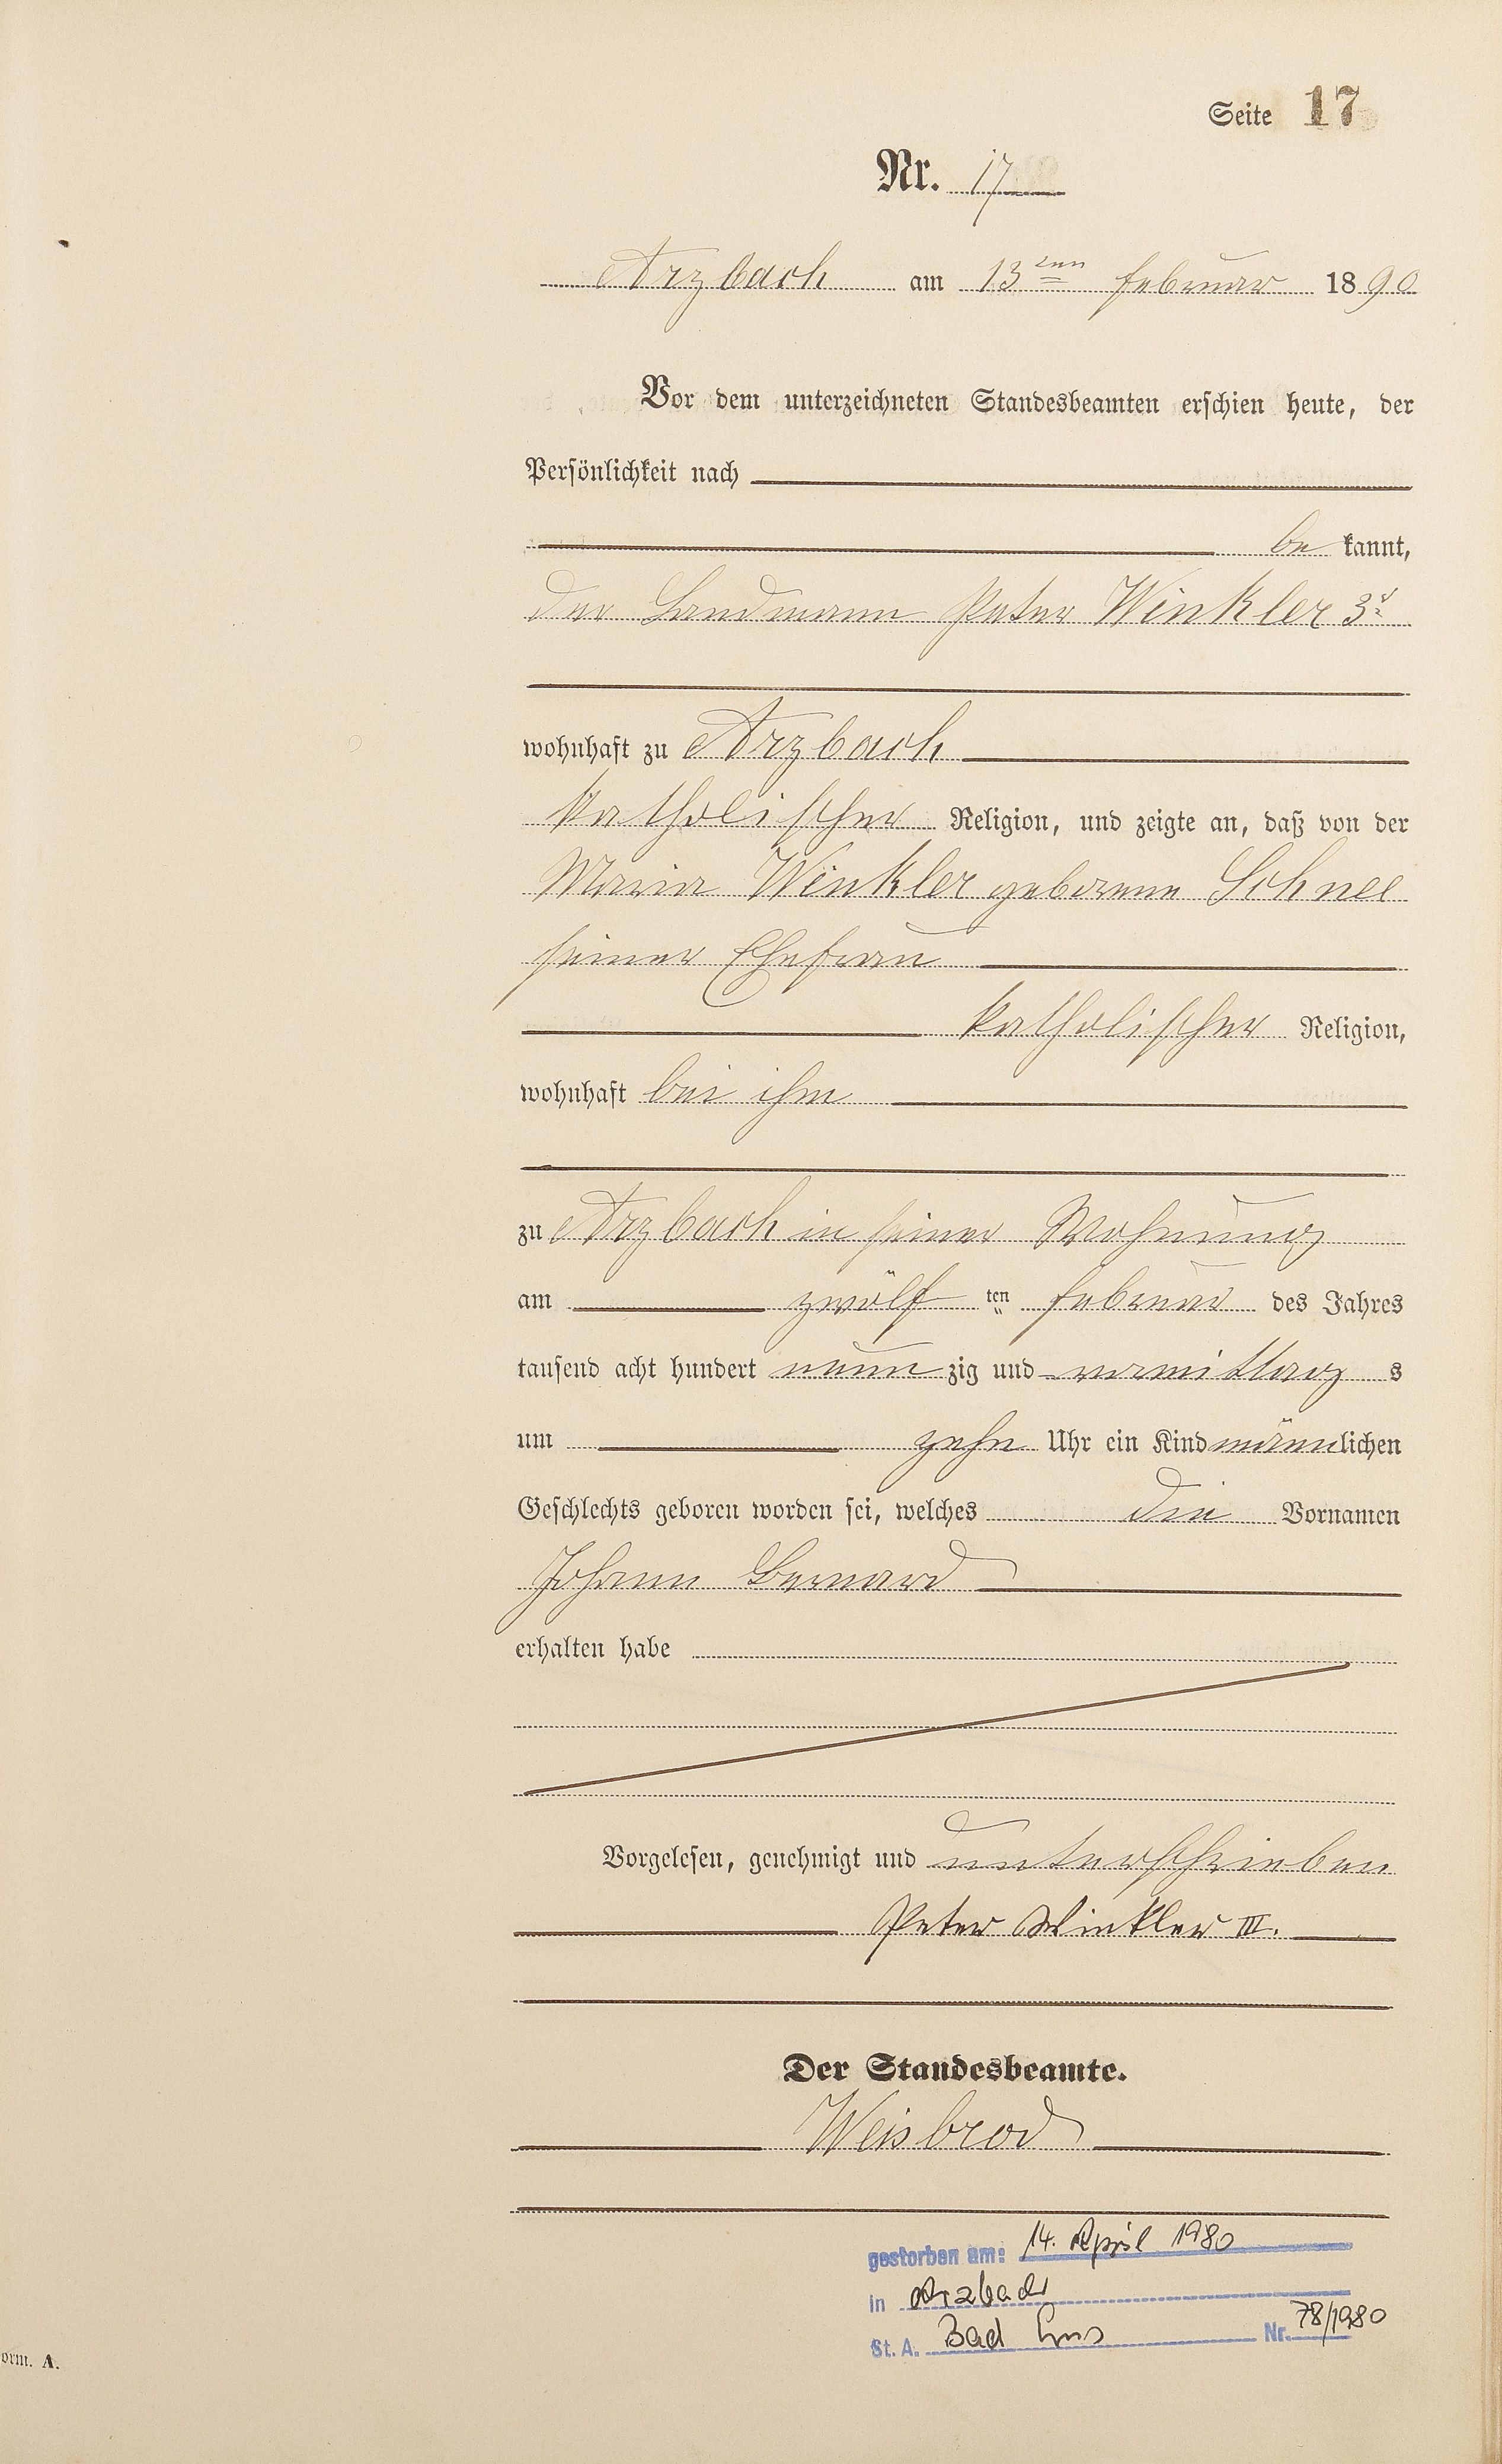 Seite 17
Nr. 17
Arzbach am 13ten Februar 1890
Vor dem unterzeichneten Standesbeamten erschien heute, der
Persönlichkeit nach
be kannt,
der Landmann Peter Winkler 3r
wohnhaft zu Arzbach
katholischer Religion, und zeigte an, daß von der
Maria Winkler geborene Schnee
seiner Ehefrau
katholischer Religion,
wohnhaft bei ihm
zu Arzbach in seiner Wohnung
am zwölf ten Februar des Jahres
tausend acht hundert neun zig und vormittag s
um zehn Uhr ein Kind männlichen
Geschlechts geboren worden sei, welches die Vornamen
Johann Bernard
erhalten habe
Vorgelesen, genehmigt und unterschrieben
Peter Winkler III.
Der Standesbeamte.
Weisbrod
gestorben am: 14. April 1980
in Arzbach
St. A. Bad Ems Nr. 78/1980
orm. A.